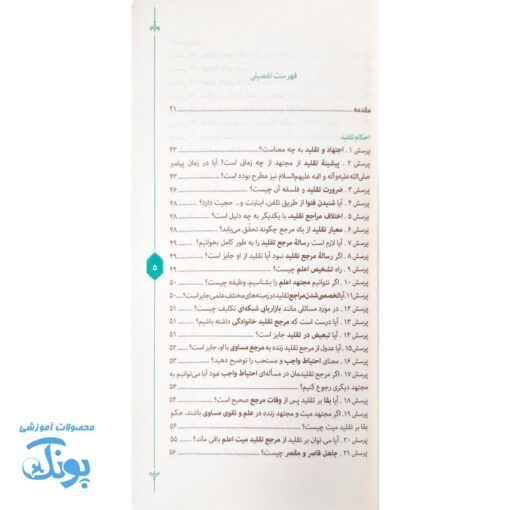 فهرست تفصیلی
مقدمه ۴۱
احکام تقلید
پرسش ۱ . اجتهاد و تقلید به چه معناست؟ ۴۳
پرسش ۲ . پیشینهٔ تقلید از مجتهد از چه زمانی است؟ آیا در زمان پیامبر
صلی‌الله‌علیه‌وآله و ائمه علیهم‌السلام نیز مطرح بوده است؟ ۴۳
پرسش ۳ . ضرورت تقلید و فلسفه آن چیست؟ ۴۶
پرسش ۴ . آیا شنیدن فتوا از طریق تلفن، اینترنت و... حجیت دارد؟ ۴۸
پرسش ۵ . اختلاف مراجع تقلید، با یکدیگر به چه دلیل است؟ ۴۸
پرسش ۶ . معیار تقلید از یك مرجع چگونه تحقّق می‌یابد؟ ۴۸
پرسش ۷ . آیا لازم است رسالهٔ مرجع تقلید را به طور کامل بخوانیم؟ ۴۹
پرسش ۸ . اگر رسالهٔ مرجع تقلید نبود آیا تقلید از او جایز است؟ ۴۹
پرسش ۹ . راه تشخیص اعلم چیست؟ ۴۹
پرسش ۱۰ . اگر نتوانیم مجتهد اعلم را بشناسیم، وظیفه چیست؟ ۵۰
پرسش ۱۱. آیا تخصصی شدن مراجع تقلید در زمینه‌های مختلف علمی جایز است؟ ۵۰
پرسش ۱۲ . در مورد مسائلی مانند بازاریابی شبکه‌ای تکلیف چیست؟ ۵۱
پرسش ۱۳ . آیا درست است که مرجع تقلید خانوادگی داشته باشیم؟ ۵۱
پرسش ۱۴ . آیا تبعیض در تقلید جایز است؟ ۵۱
پرسش ۱۵. آیا عدول از مرجع تقلید زنده به مرجع مساوی با او، جایز است؟ ۵۲
پرسش ۱۶ . معنای احتیاط واجب و مستحب را توضیح دهید؟ ۵۳
پرسش ۱۷ . اگر مرجع تقلیدمان در مسأله‌ای احتیاط واجب نمود آیا می‌توانیم به
مجتهد دیگری رجوع کنیم؟ ۵۴
پرسش ۱۸ . آیا بقا بر تقلید پس از وفات مرجع صحیح است؟ ۵۴
پرسش ۱۹ . اگر مجتهد میت و مجتهد زنده در علم و تقوی مساوی باشند، حکم
بقا بر تقلید میت چیست؟ ۵۴
پرسش ۲۰ . آیا می توان بر تقلید از مرجع تقلید میت اعلم باقی ماند؟ ۵۵
پرسش ۲۱ . جاهل قاصر و مقصر چیست؟ ۵۶
۵
محصولات آموزشی
پونک